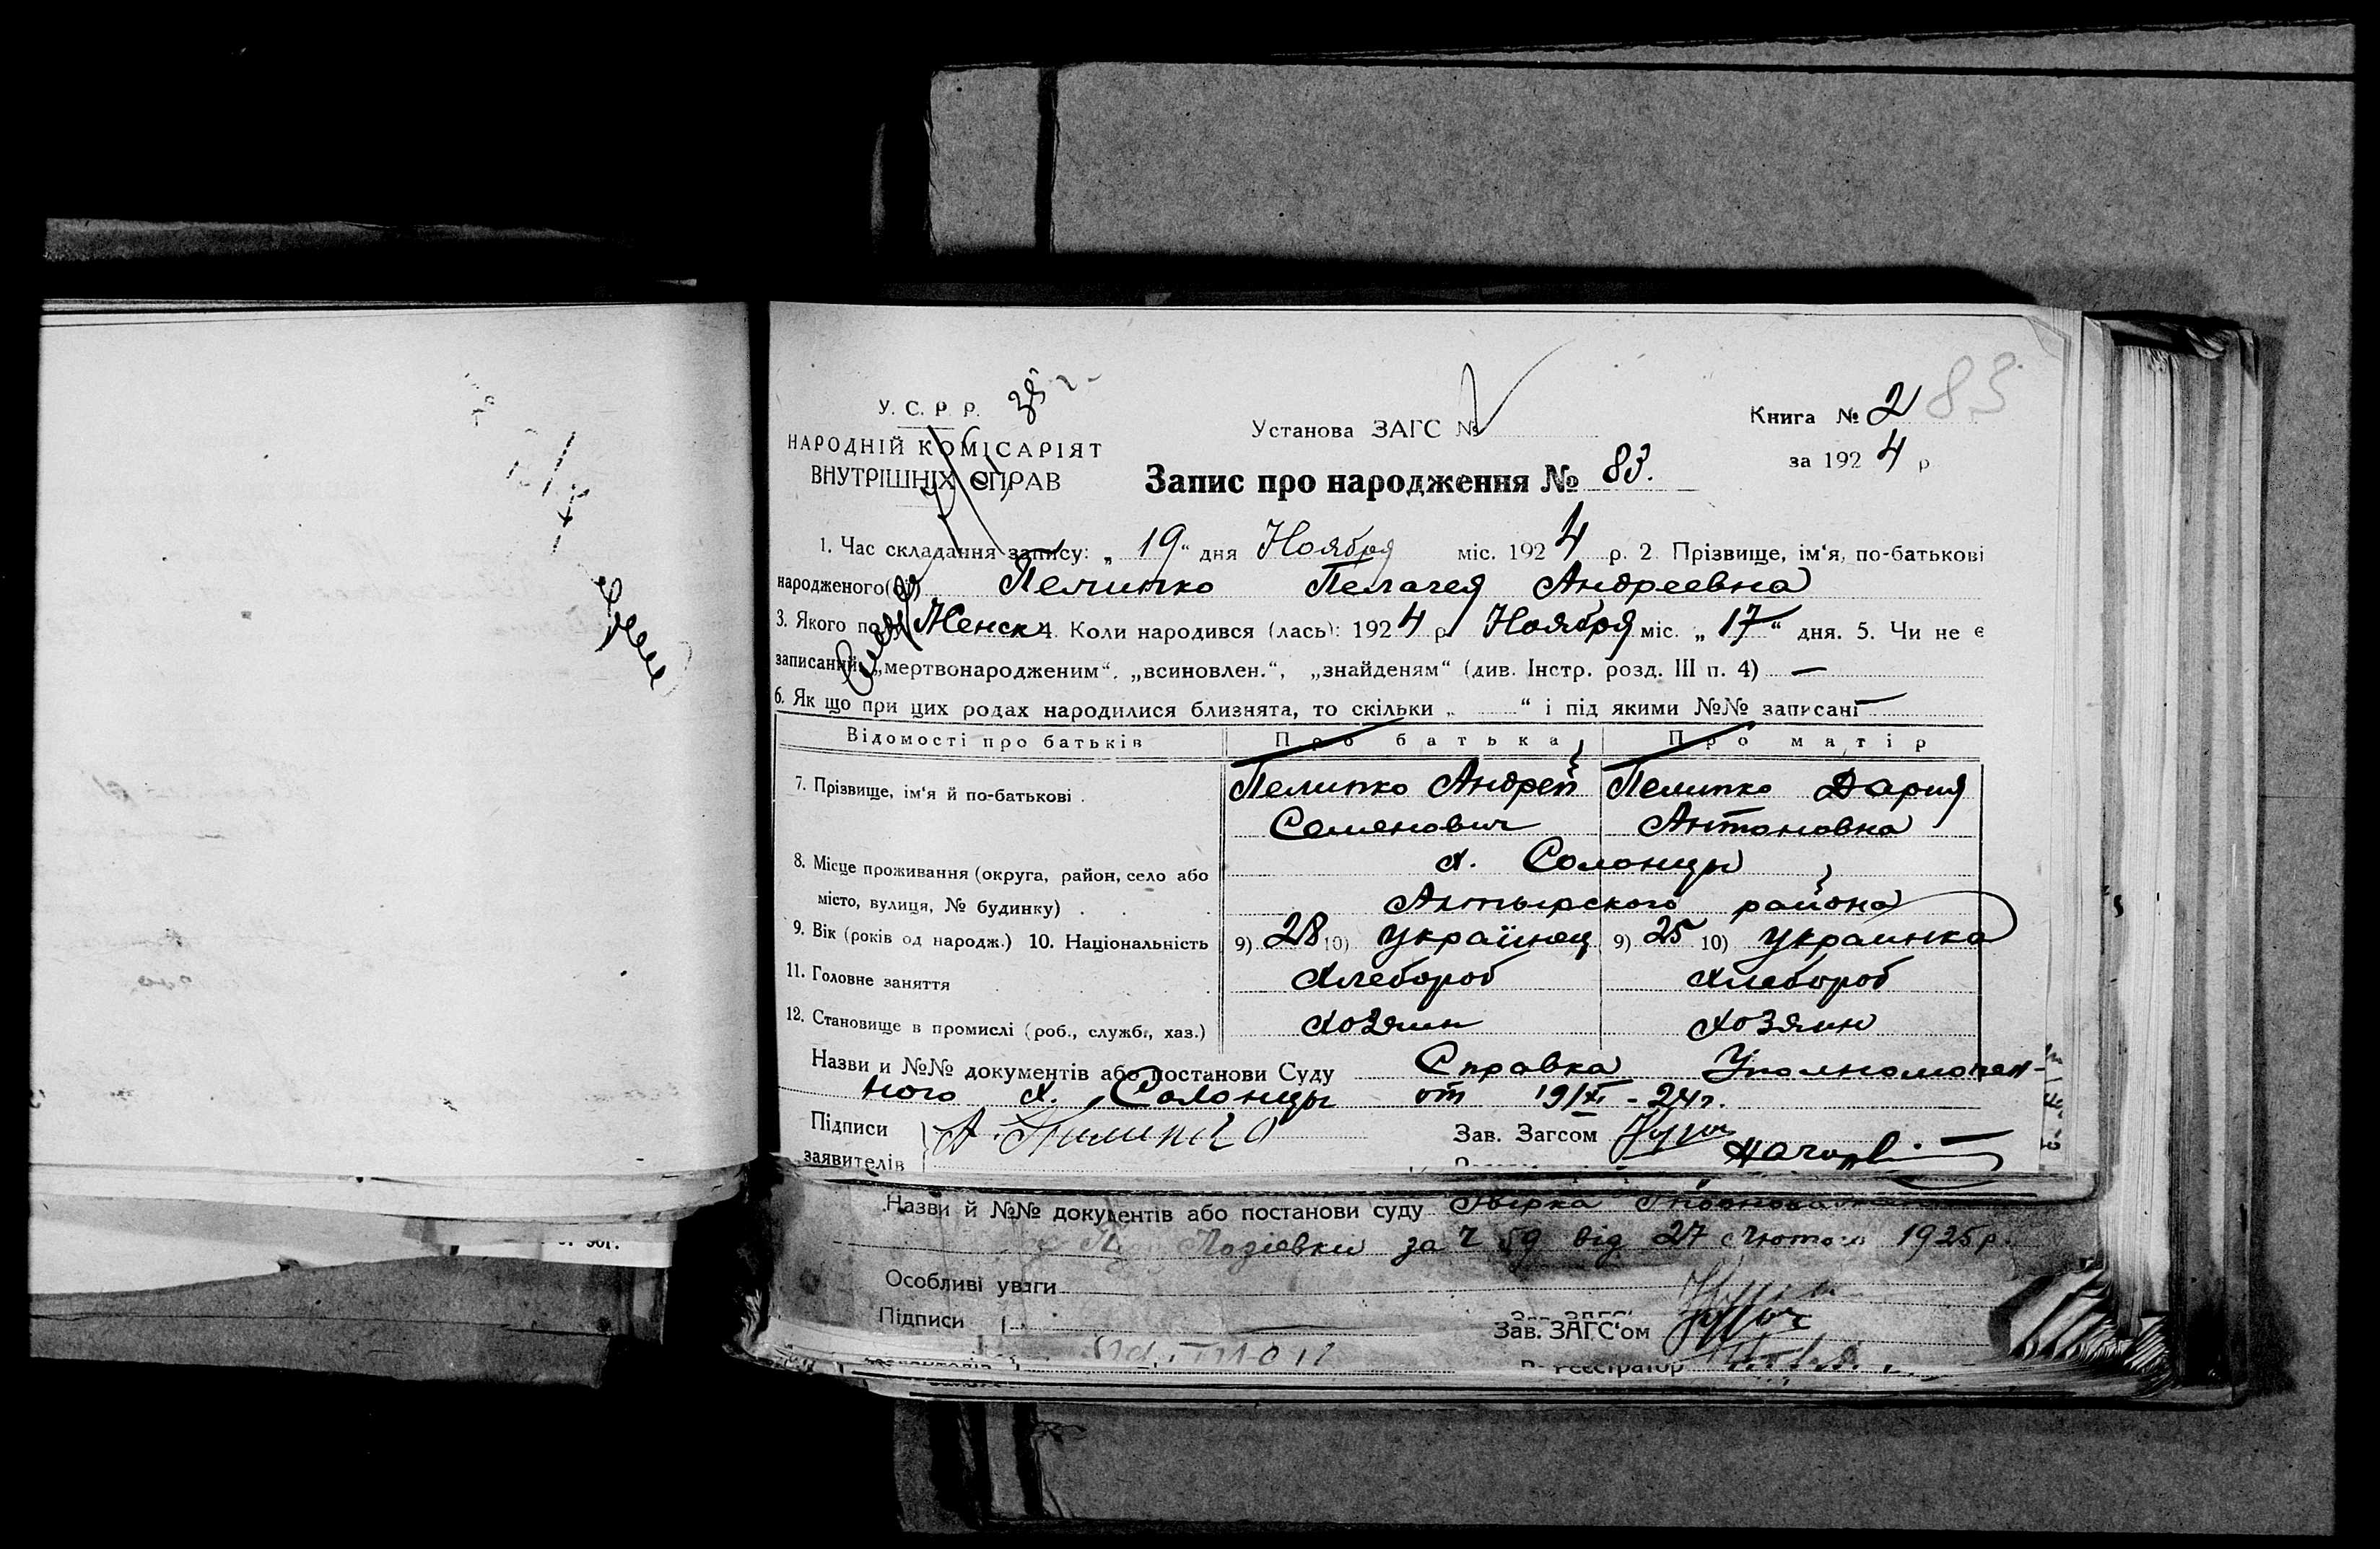 У. С. Р. Р.
НАРОДНІЙ КОМІСАРІЯТ
ВНУТРІШНІХ СПРАВ
Установа ЗАГС №
Книга № 2 83
за 1924 р
Запис про народження № 83.
1. Час складання запису: „ 19 “ дня Ноября міс. 1924 р. 2 Прізвище, ім‘я, по-батькові
народженого(ої) Пелипко Пелагея Андреевна
3. Якого полу Женск 4. Коли народився (лась): 1924 р Ноября міс. „ 17 “ дня. 5. Чи не є
записаний „мертвонародженим“, „всиновлен.“, „знайденям“ (див. Інстр. розд. III п. 4) —
6. Як що при цих родах народилися близнята, то скільки „ “ і під якими №№ записані —
Відомості про батьків Про батька Про матір
7. Прізвище, ім‘я й по-батькові . Пелипко Андрей Пелипко Дария
Семенович Антоновна
8. Місце проживання (округа, район, село або х. Солонцы
місто, вулиця, № будинку) . . . Ахтырского района
9. Вік (років од народж.) 10. Національність 9) 28 10) Українец 9) 25 10) Украинка
11. Головне заняття Хлебороб Хлебороб
12. Становище в промислі (роб., службг, хаз.) Хозяин Хозяин
Назви и №№ документів або постанови Суду Справка Уполномочен-
ного х. Солонцы от 19/XI - 24 г.
Підписи Зав. Загсом
заявителів
Назви й №№ документів або постанови суду
за Ч 59 від 27 Лютого 1925 р.
Особливі уваги
Підписи Зав. ЗАГС‘ом
Реєстратор